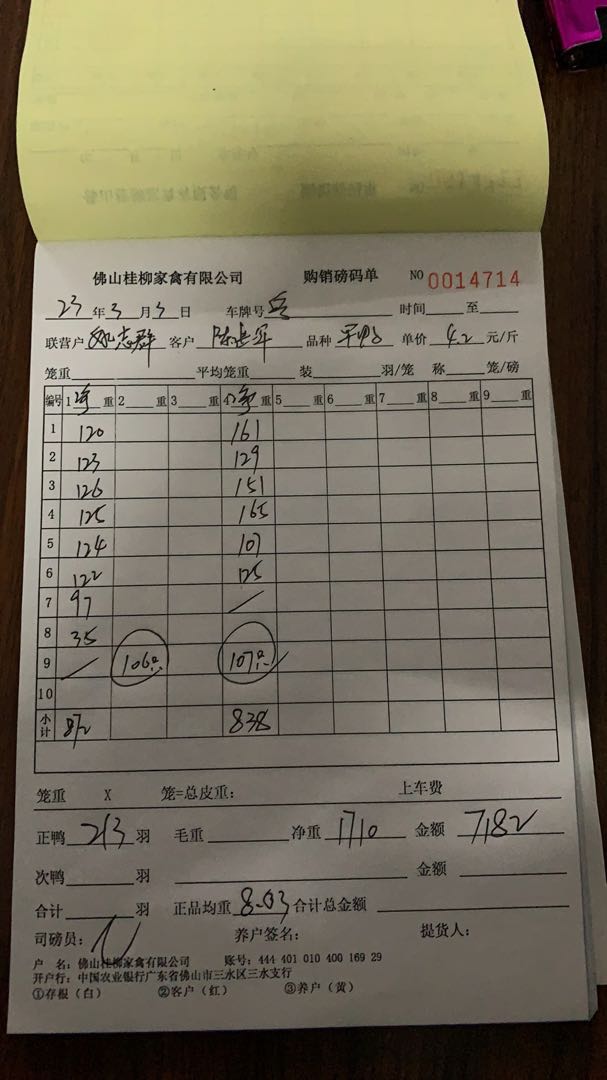 佛山桂柳家禽有限公司 购销磅码单 NO 0014714
23 年 3 月 3 日 车牌号 时间 至
联营户 志群 客户 陈 军 品种 单价 4.2 元/斤
笼重 平均笼重 装 羽/笼 称 笼/磅
编号 1 净 重 2 重 3 重 净 重 5 重 6 重 7 重 8 重 9 重
1 120 161
2 123 129
3 126 151
4 125 165
5 124 107
6 122 125
7 97 /
8 35
9 / 106 107
10
小计 872 838
笼重 X 笼=总皮重: 上车费
正鸭 213 羽 毛重 净重 1710 金额 7182
次鸭 羽 金额
合计 羽 正品均重 8.03 合计总金额
司磅员: 养户签名: 提货人:
户 名: 佛山桂柳家禽有限公司 账号: 444 401 010 400 169 29
开户行: 中国农业银行广东省佛山市三水区三水支行
①存根（白） ②客户（红） ③养户（黄）